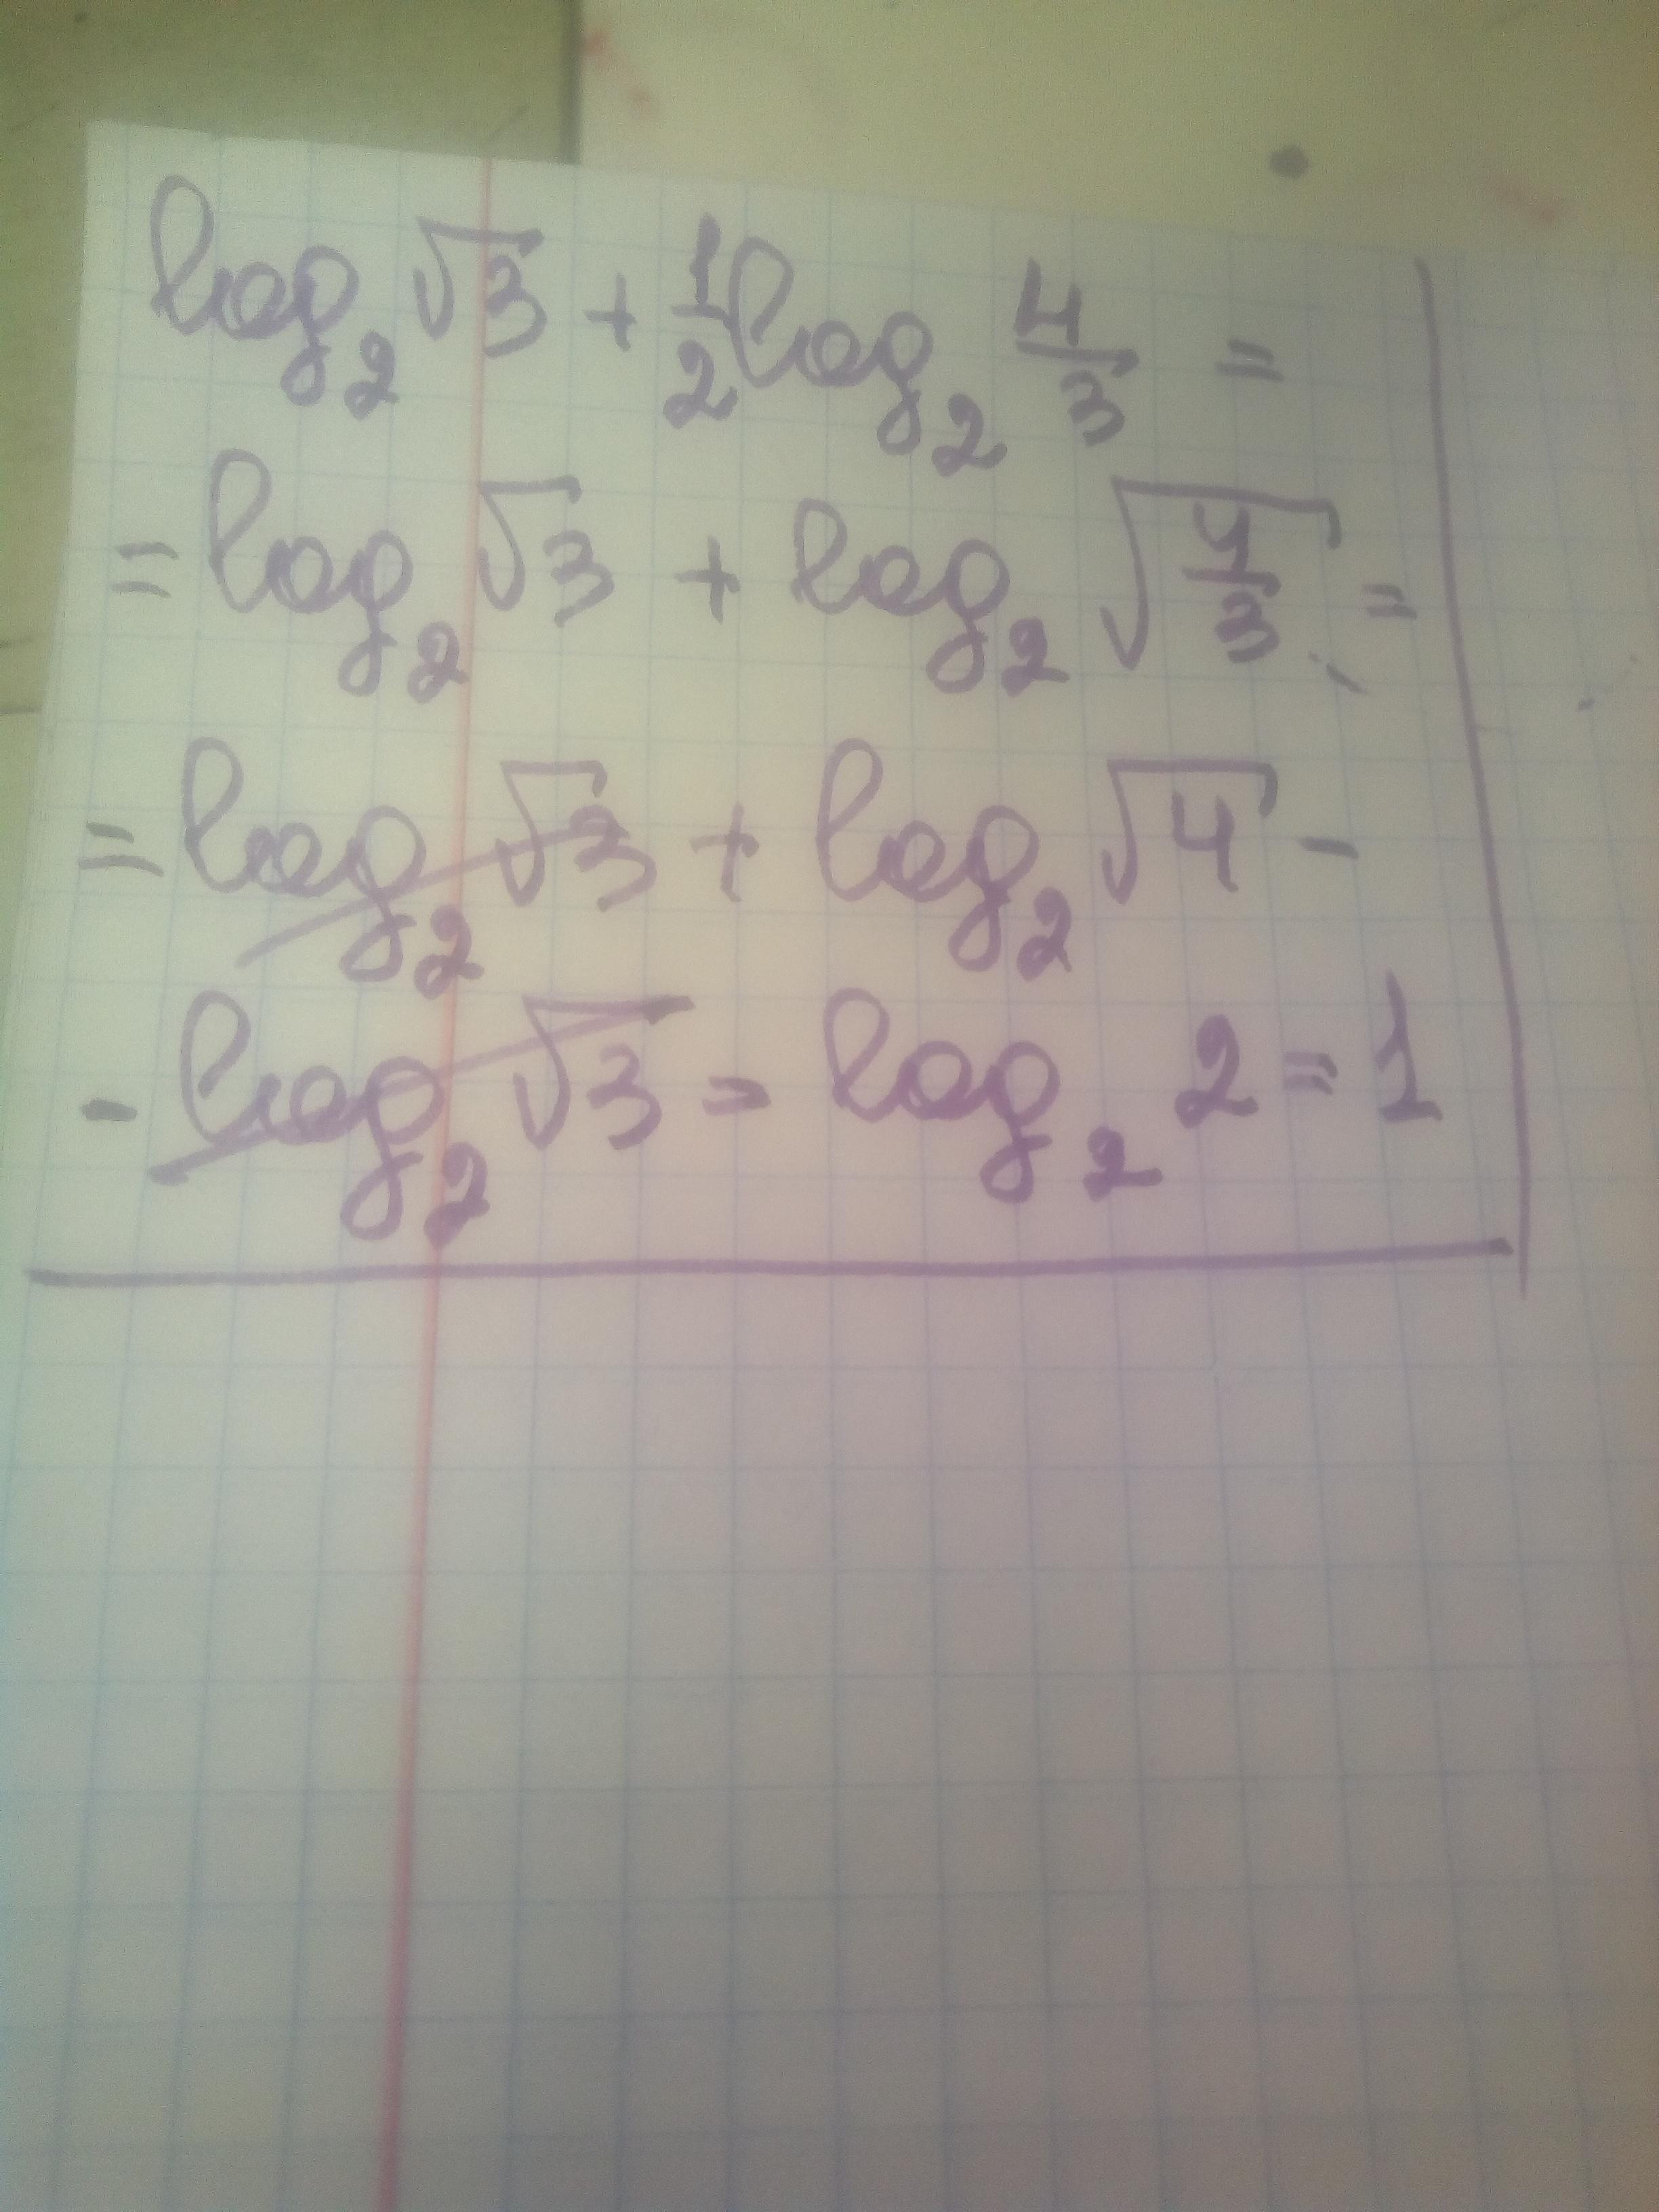 log₂ √3 + 1/2 log₂ 4/3 =
= log₂ √3 + log₂ √(4/3) =
= log₂ √3 + log₂ √4 -
- log₂ √3 = log₂ 2 = 1